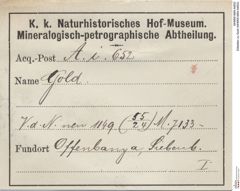 K. k. Naturhistorisches Hof-Museum.
Mineralogisch-petrographische Abtheilung.
Acq.-Post A. i. 652
Name Gold.
V. d. N. nev 1149 (55/24) M. 7133.
Fundort Offenbanya, Siebenb.
I